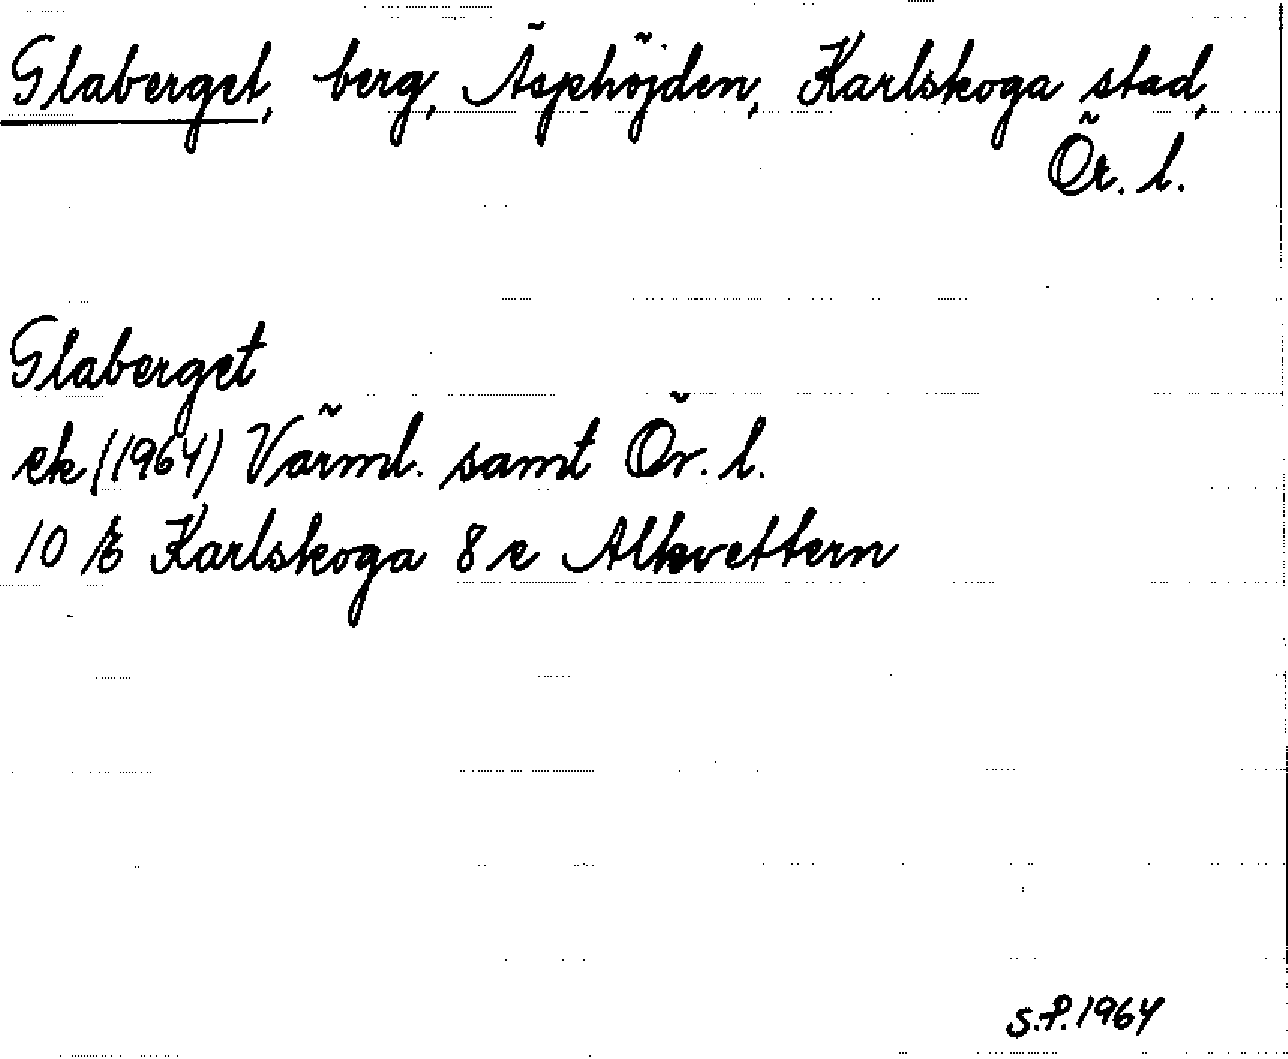 Glaberget, berg, Äsphöjden, Karlskoga stad,
Ör. l.
Glaberget
ek (1964) Värml. samt Ör. l.
10 E Karlskoga 8 e Alkvettern
S.F. 1964